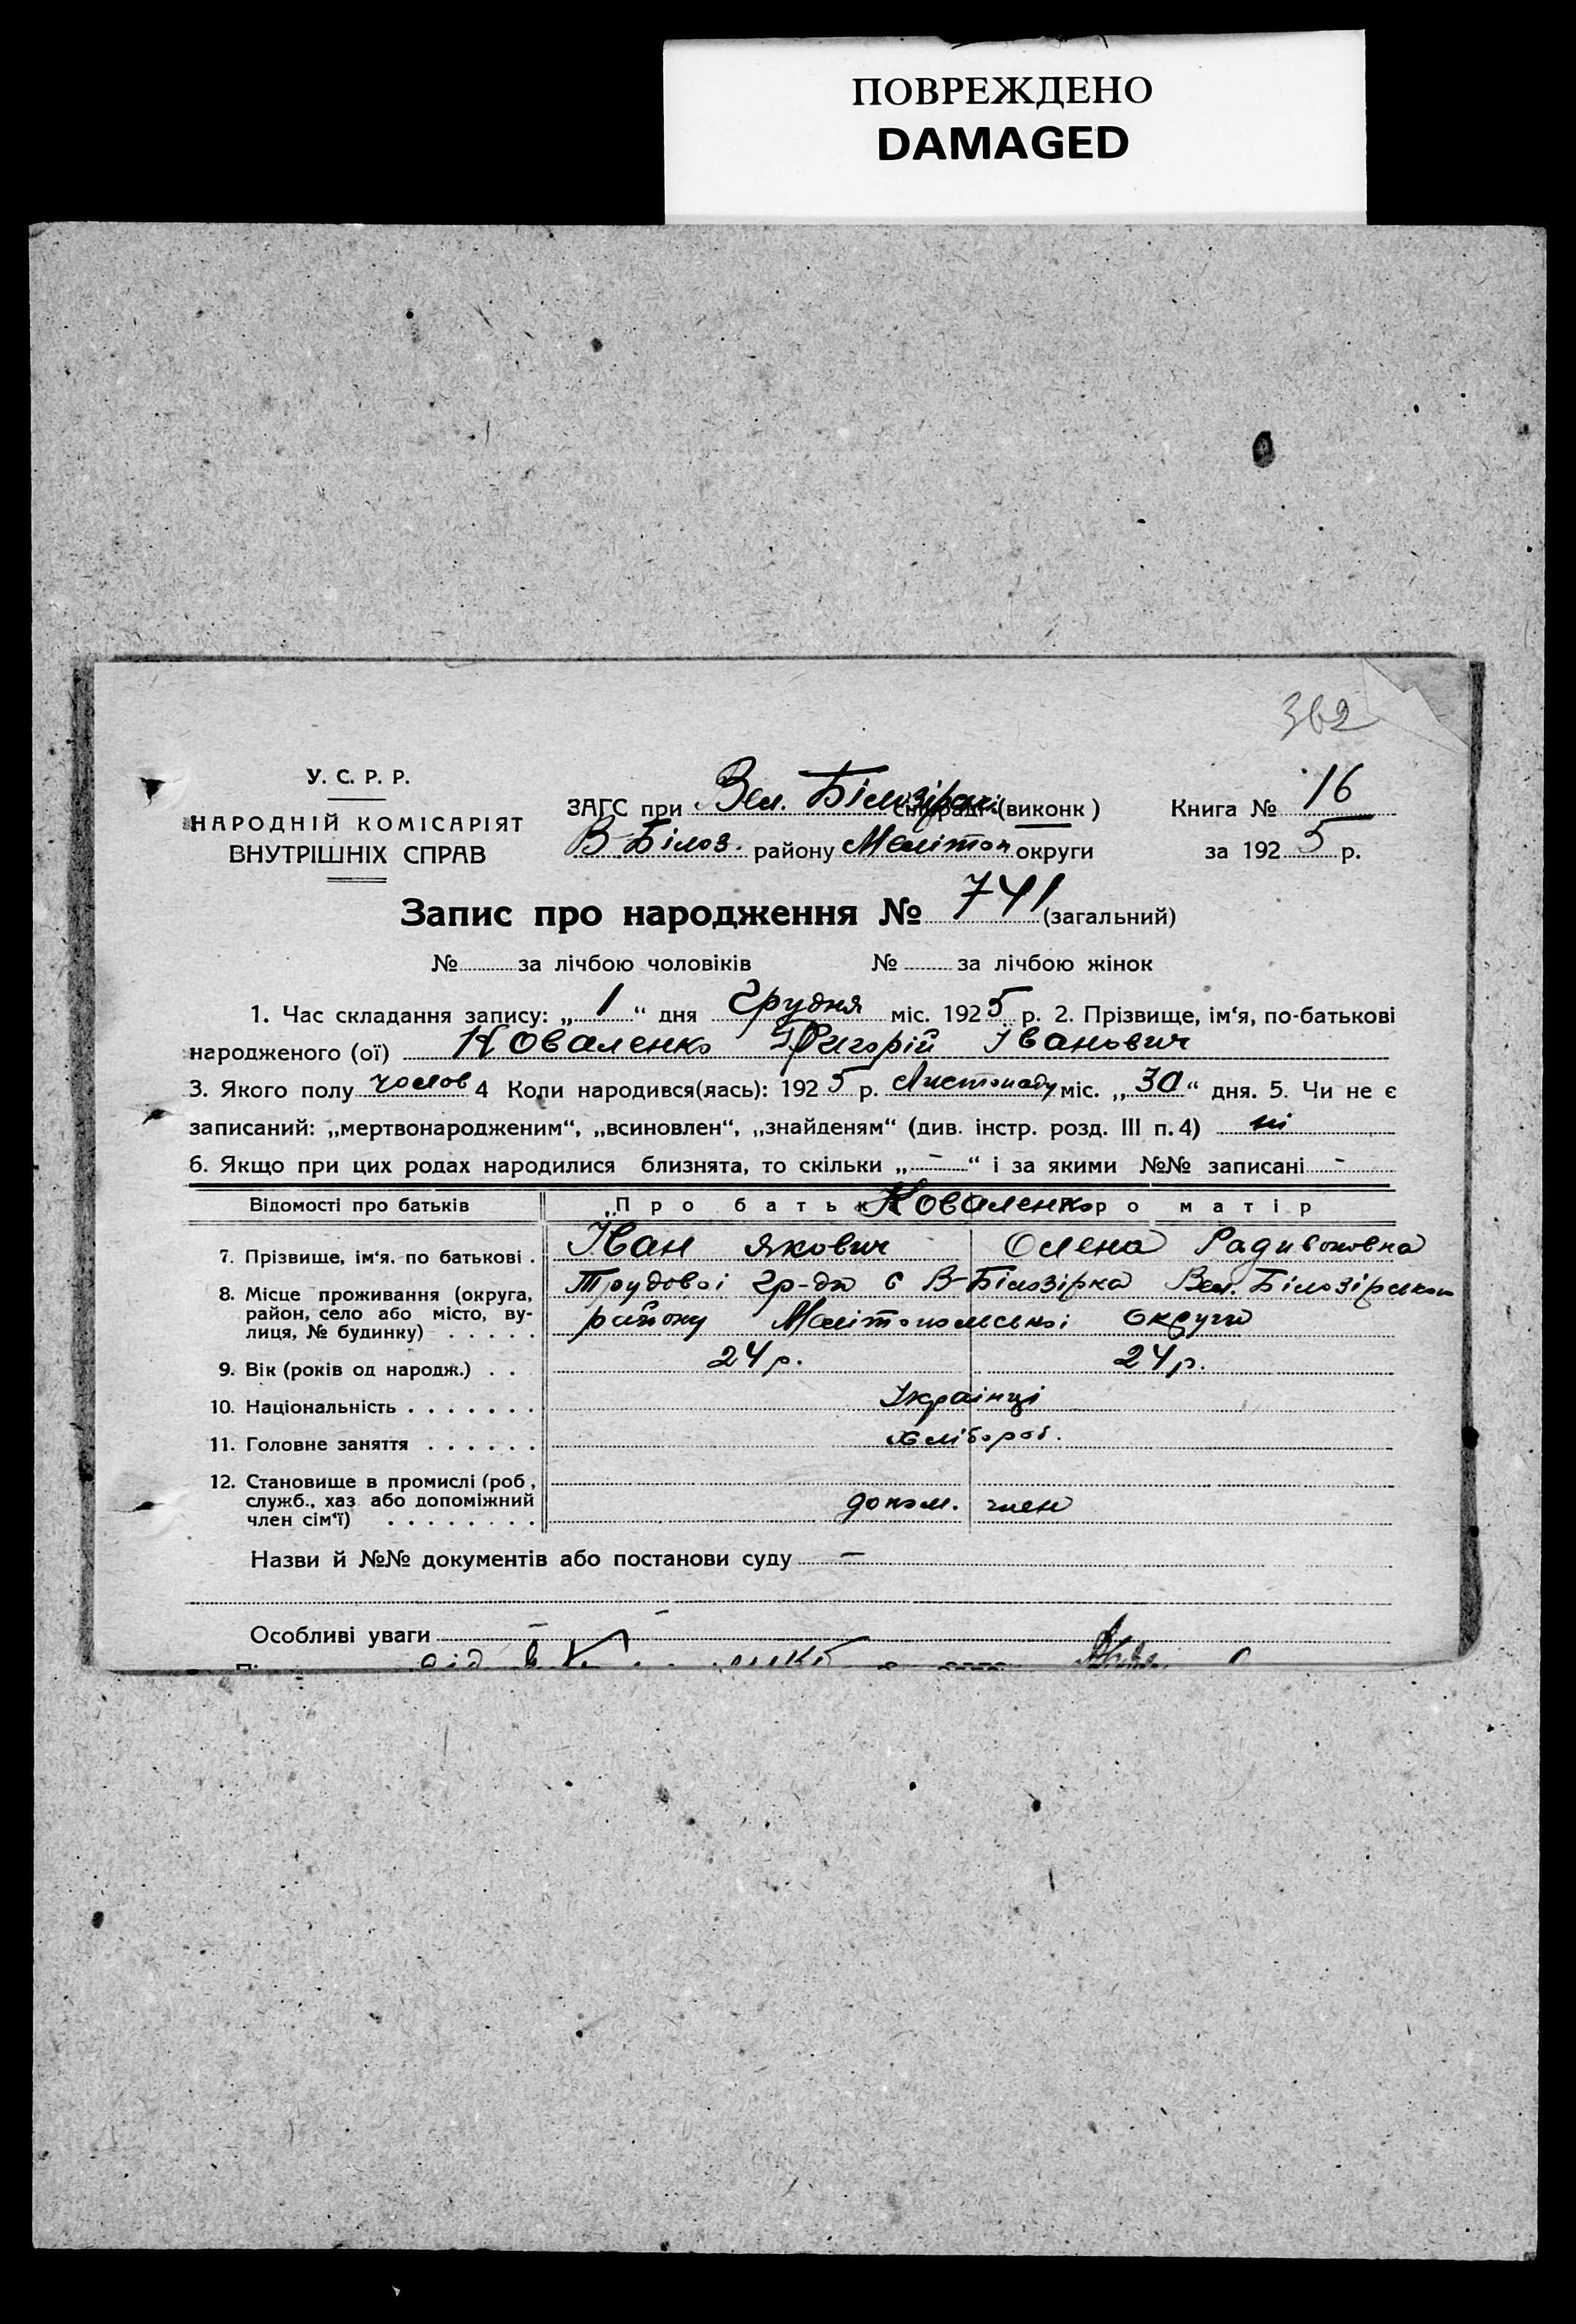 ПОВРЕЖДЕНО
DAMAGED
362
У. С. Р. Р.
НАРОДНІЙ КОМІСАРІЯТ
ВНУТРІШНІХ СПРАВ
ЗАГС при Вел. Білозірськ. сільраді (виконк)
В-Білоз. району Мелітоп округи
Книга № 16
за 1925 р.
Запис про народження № 741 (загальний)
№ за лічбою чоловіків № за лічбою жінок
1. Час складання запису: „1“ дня Грудня міс. 1925 р. 2. Прізвище, ім‘я, по-батькові
народженого (ої) Коваленко Григорій Іванович
3. Якого полу чолов 4 Коли народився(лась): 1925 р. Листопаду міс. „30“ дня. 5. Чи не є
записаний: „мертвонародженим“, „всиновлен“, „знайденям“ (див. інстр. розд. III п. 4) ні
6. Якщо при цих родах народилися близнята, то скільки „-“ і за якими №№ записані -
Відомості про батьків Про батька Коваленко Про матір
7. Прізвище, ім‘я, по батькові . Іван Якович Олена Радивоновна
8. Місце проживання (округа, район, село або місто, вулиця, № будинку) . . . . . Трудової гр-да с В-Білозірка Вел. Білозірської
району Мелітопольської округи
9. Вік (років од народж.) . . 24 р. 24 р.
10. Національність . . . . . . . Українці
11. Головне заняття . . . . . . Хлібороб.
12. Становище в промислі (роб,
служб., хаз або допоміжний
член сім‘ї) . . . . . . . . допом. член
Назви й №№ документів або постанови суду —
Особливі уваги — -